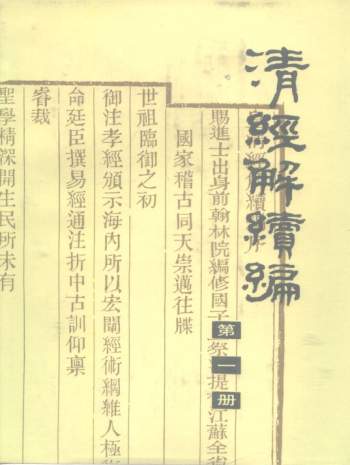 清經解續編
第一册
賜進士出身前翰林院編修國子祭提江蘇全省
國家稽古同天崇邁往牒
世祖臨御之初
御注孝經頒示海內所以宏闡經術綱維人極
命廷臣撰易經通注折中古訓仰稟
睿裁
聖學精深開生民所未有